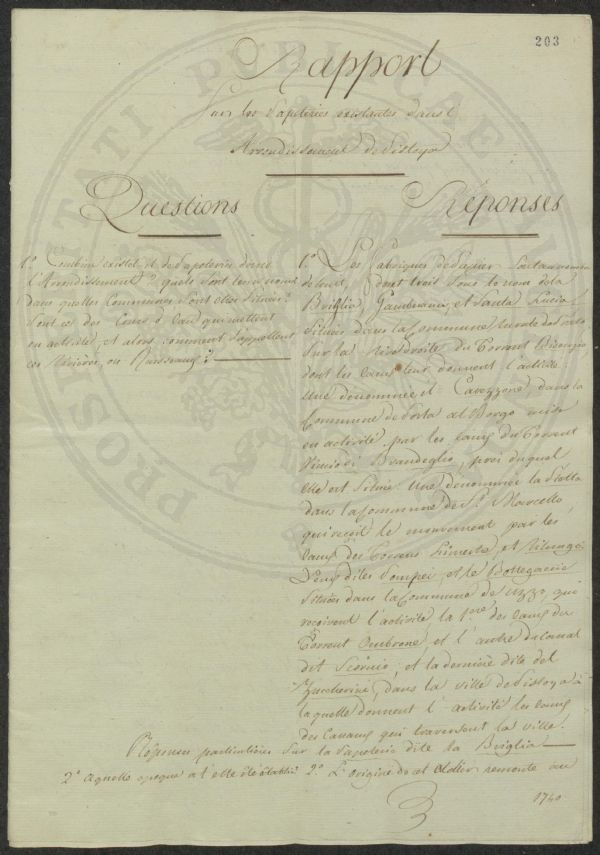 203
Rapport
sur les Papeteries existantes dans l'
Arrondissement de Pistoja
Questions
Réponses
1.º Combien existet-il de Papeteries dans
l'Arrondissement? quels sont leurs noms
dans quelles Communes sont elles situées?
Sont ce des Cours d'eau qui mettent
en activité, et alors comment s'appellent
ces Rivieres, ou Ruisseaux?
1.º Les Fabriques de Papier sont au nombre
de huit, dont trois sous le nom de la
Briglia, Gamberaia, et Santa Lucia
situées dans la Commune rurale de Prato
sur la Rive Droite du Torrent Bisenzio
dont les eaux leur donnent l'activité.
Une denommée il Cavezzone dans la
Commune de Porta al Borgo mise
en activité par les eaux du Torrent
Vincio di Brandeglio, près duquel
elle est située. Une denommée la
dans la Commune de S.t Marcello,
qui reçoit le mouvement par les
eaux des Torrens Limestre, et
Deux dites Pompei, et le Bottegaccie
situées dans la Commune de qui
reçoivent l'activité la 1.ere des eaux du
Torrent Ombrone, et l'autre du Canal
dit Scornio; et la derniere dite del
Zuccherini, dans la ville de Pistoja à
laquelle donnent l'activité les eaux
des Canaux qui traversent la ville.
Réponses particulières sur la Papeterie dite la Briglia
2.º A quelle epoque a t'elle été établie 2.º L'origine de cet Atelier remonte au
1740
PROSPERITATI PUBLICAE